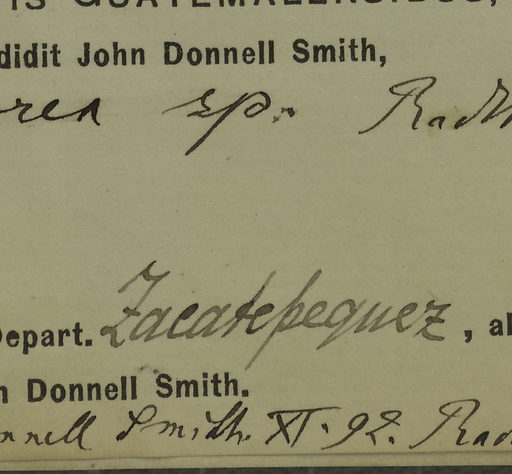 IS GUATEMALENSIBUS,
didit John Donnell Smith,
rea sp. Radlk
Depart. Zacatepequez, al
n Donnell Smith.
nnell Smith. XI. 92. Rad